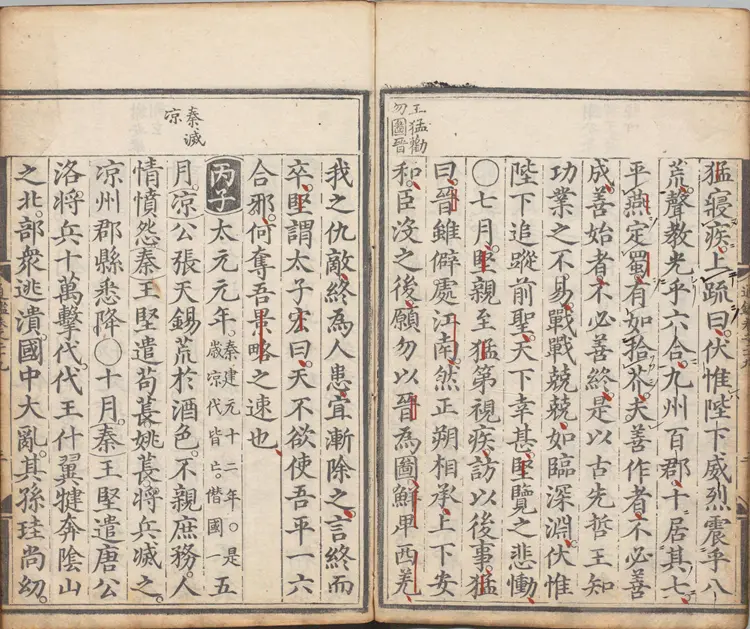 王猛勸
勿圖晉
猛寢疾。上疏曰。伏惟陛下威烈震乎八
荒。聲教光乎六合。九州百郡。十居其七。
平燕定蜀。有如拾芥。夫善作者。不必善
成。善始者。不必善終。是以古先哲王知
功業之不易。戰戰兢兢。如臨深淵。伏惟
陛下追蹤前聖。天下幸甚。堅覽之悲慟。
○七月。堅親至猛第視疾。訪以後事。猛
曰。晉雖僻處江南。然正朔相承。上下安
和。臣沒之後。願勿以晉為圖。鮮卑西羌。
我之仇敵。終為人患。宜漸除之。言終而
卒。堅謂太子宏曰。天不欲使吾平一六
合邪。何奪吾景略之速也。
秦滅
凉
丙子 太元元年。秦建元十二年。○是歲凉代皆亡。僭國一 五
月。凉公張天錫荒於酒色。不親庶務。人
情憤怨。秦王堅遣苟萇姚萇將兵滅之。
凉州郡縣悉降。○十月。秦王堅遣唐公
洛將兵十萬擊代。代王什翼犍奔陰山
之北。部衆逃潰。國中大亂。其孫珪尚幼。